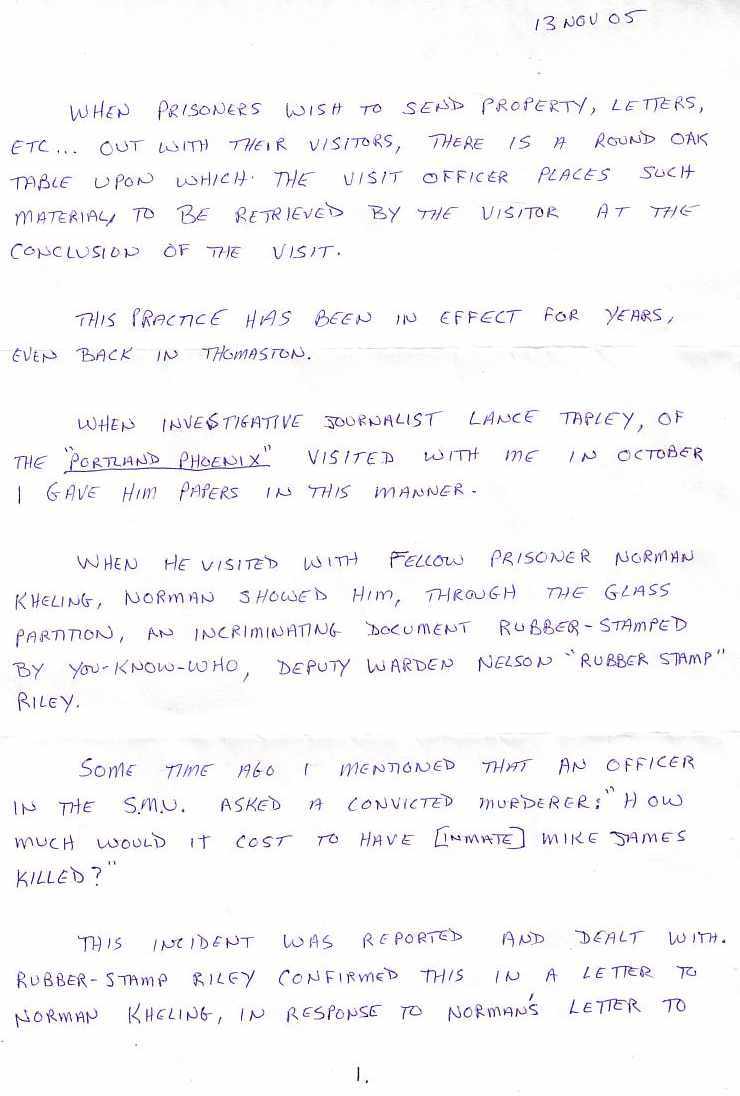 13 NOV 05
WHEN PRISONERS WISH TO SEND PROPERTY, LETTERS,
ETC... OUT WITH THEIR VISITORS, THERE IS A ROUND OAK
TABLE UPON WHICH THE VISIT OFFICER PLACES SUCH
MATERIAL, TO BE RETRIEVED BY THE VISITOR AT THE
CONCLUSION OF THE VISIT.
THIS PRACTICE HAS BEEN IN EFFECT FOR YEARS,
EVEN BACK IN THOMASTON.
WHEN INVESTIGATIVE JOURNALIST LANCE TAPLEY, OF
THE "PORTLAND PHOENIX" VISITED WITH ME IN OCTOBER
I GAVE HIM PAPERS IN THIS MANNER.
WHEN HE VISITED WITH FELLOW PRISONER NORMAN
KHELING, NORMAN SHOWED HIM, THROUGH THE GLASS
PARTITION, AN INCRIMINATING DOCUMENT RUBBER-STAMPED
BY YOU-KNOW-WHO, DEPUTY WARDEN NELSON "RUBBER STAMP"
RILEY.
SOME TIME AGO I MENTIONED THAT AN OFFICER
IN THE S.M.U. ASKED A CONVICTED MURDERER: "HOW
MUCH WOULD IT COST TO HAVE [INMATE] MIKE JAMES
KILLED?"
THIS INCIDENT WAS REPORTED AND DEALT WITH.
RUBBER-STAMP RILEY CONFIRMED THIS IN A LETTER TO
NORMAN KHELING, IN RESPONSE TO NORMAN'S LETTER TO
1.